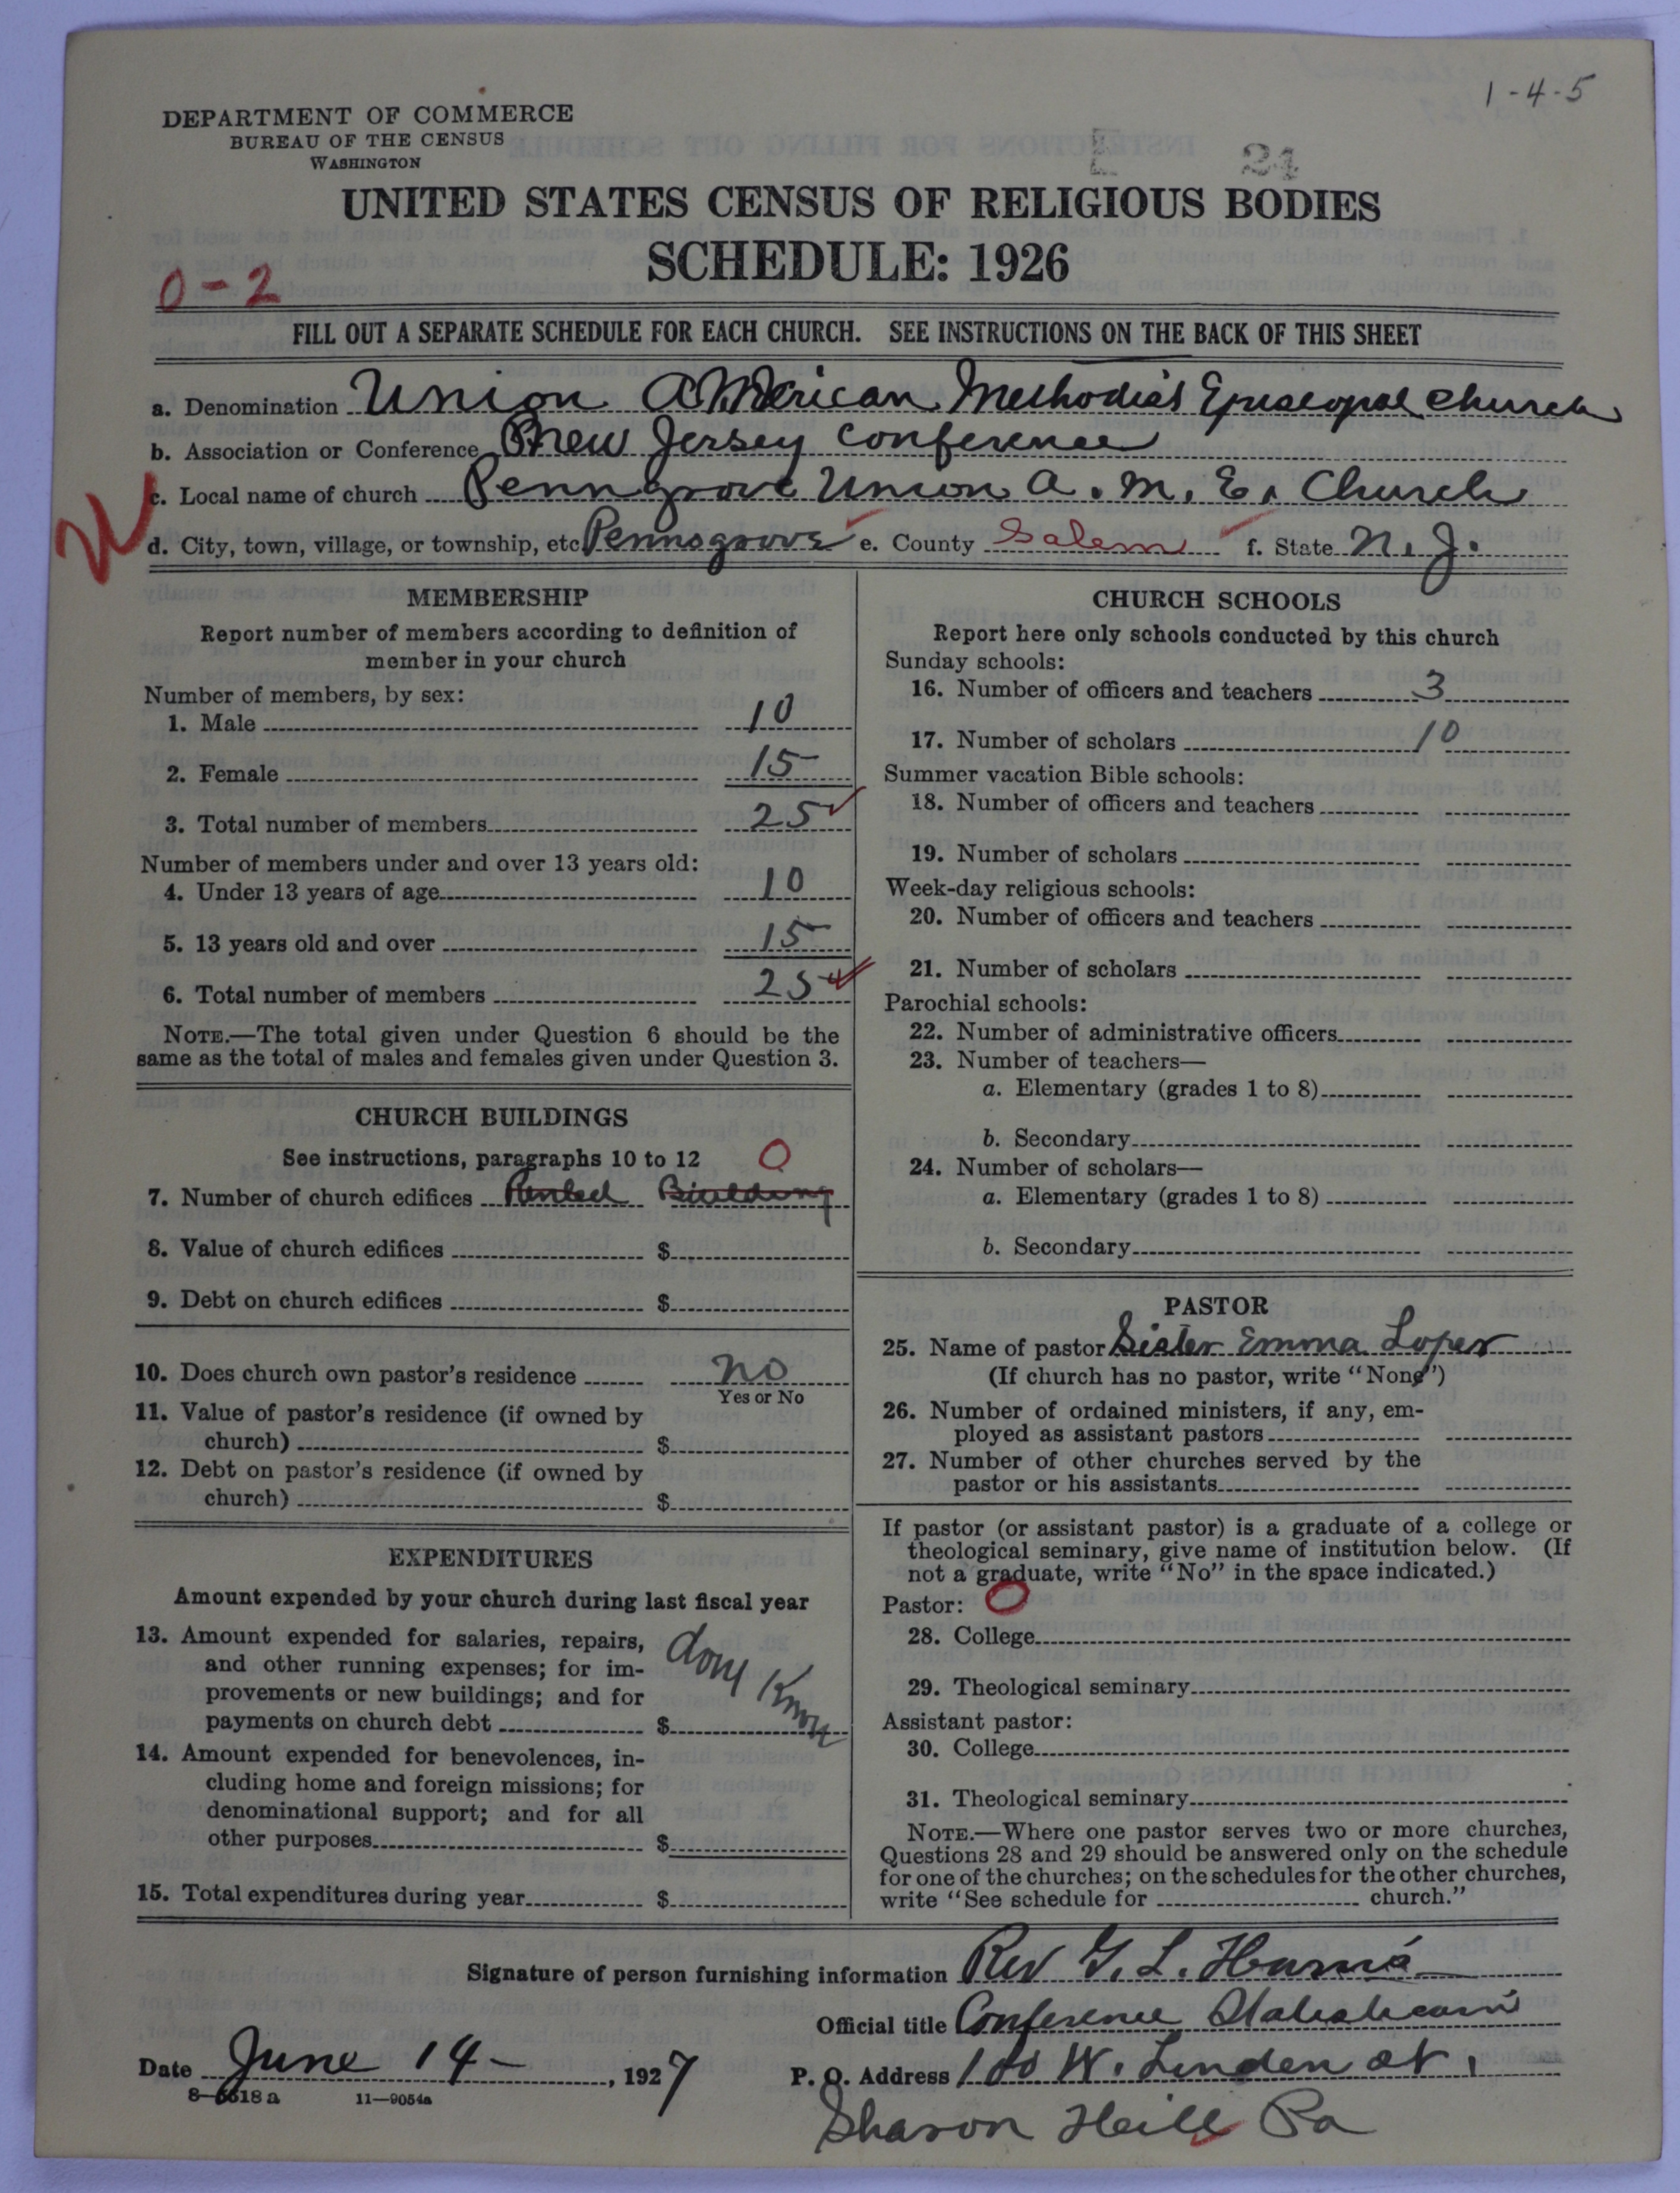 1-4-5
DEPARTMENT OF COMMERCE
BUREAU OF THE CENSUS
WASHINGTON
24
UNITED STATES CENSUS OF RELIGIOUS BODIES
SCHEDULE: 1926
0-2
FILL OUT A SEPARATE SCHEDULE FOR EACH CHURCH. SEE INSTRUCTIONS ON THE BACK OF THIS SHEET
a. Denomination Union American Methodist Episcopal Church
b. Association or Conference New Jersey Conference
c. Local name of church Penngrove Union A. M. E. Church
d. City, town, village, or township, etc Pennsgrove e. County Salem f. State N. J.
MEMBERSHIP
Report number of members according to definition of
member in your church
Number of members, by sex:
1. Male 10
2. Female 15
3. Total number of members 25
Number of members under and over 13 years old:
4. Under 13 years of age 10
5. 13 years old and over 15
6. Total number of members 25
NOTE.—The total given under Question 6 should be the
same as the total of males and females given under Question 3.
CHURCH BUILDINGS
See instructions, paragraphs 10 to 12 0
7. Number of church edifices Rented Building
8. Value of church edifices $
9. Debt on church edifices $
10. Does church own pastor's residence no
Yes or No
11. Value of pastor's residence (if owned by
church) $
12. Debt on pastor's residence (if owned by
church) $
EXPENDITURES
Amount expended by your church during last fiscal year
13. Amount expended for salaries, repairs,
and other running expenses; for im-
provements or new buildings; and for
payments on church debt $ dont Know
14. Amount expended for benevolences, in-
cluding home and foreign missions; for
denominational support; and for all
other purposes $
15. Total expenditures during year $
CHURCH SCHOOLS
Report here only schools conducted by this church
Sunday schools:
16. Number of officers and teachers 3
17. Number of scholars 10
Summer vacation Bible schools:
18. Number of officers and teachers
19. Number of scholars
Week-day religious schools:
20. Number of officers and teachers
21. Number of scholars
Parochial schools:
22. Number of administrative officers
23. Number of teachers—
a. Elementary (grades 1 to 8)
b. Secondary
24. Number of scholars—
a. Elementary (grades 1 to 8)
b. Secondary
PASTOR
25. Name of pastor Sister Emma Loper
(If church has no pastor, write "None")
26. Number of ordained ministers, if any, em-
ployed as assistant pastors
27. Number of other churches served by the
pastor or his assistants
If pastor (or assistant pastor) is a graduate of a college or
theological seminary, give name of institution below. (If
not a graduate, write "No" in the space indicated.)
Pastor: 0
28. College
29. Theological seminary
Assistant pastor:
30. College
31. Theological seminary
NOTE.—Where one pastor serves two or more churches,
Questions 28 and 29 should be answered only on the schedule
for one of the churches; on the schedules for the other churches,
write "See schedule for church."
Signature of person furnishing information Rev G. L. Harris
Official title Conference
Date June 14 - , 1927 P. O. Address 100 W. Linden st.
8—6518 a 11—9054a
Sharon Heill Pa